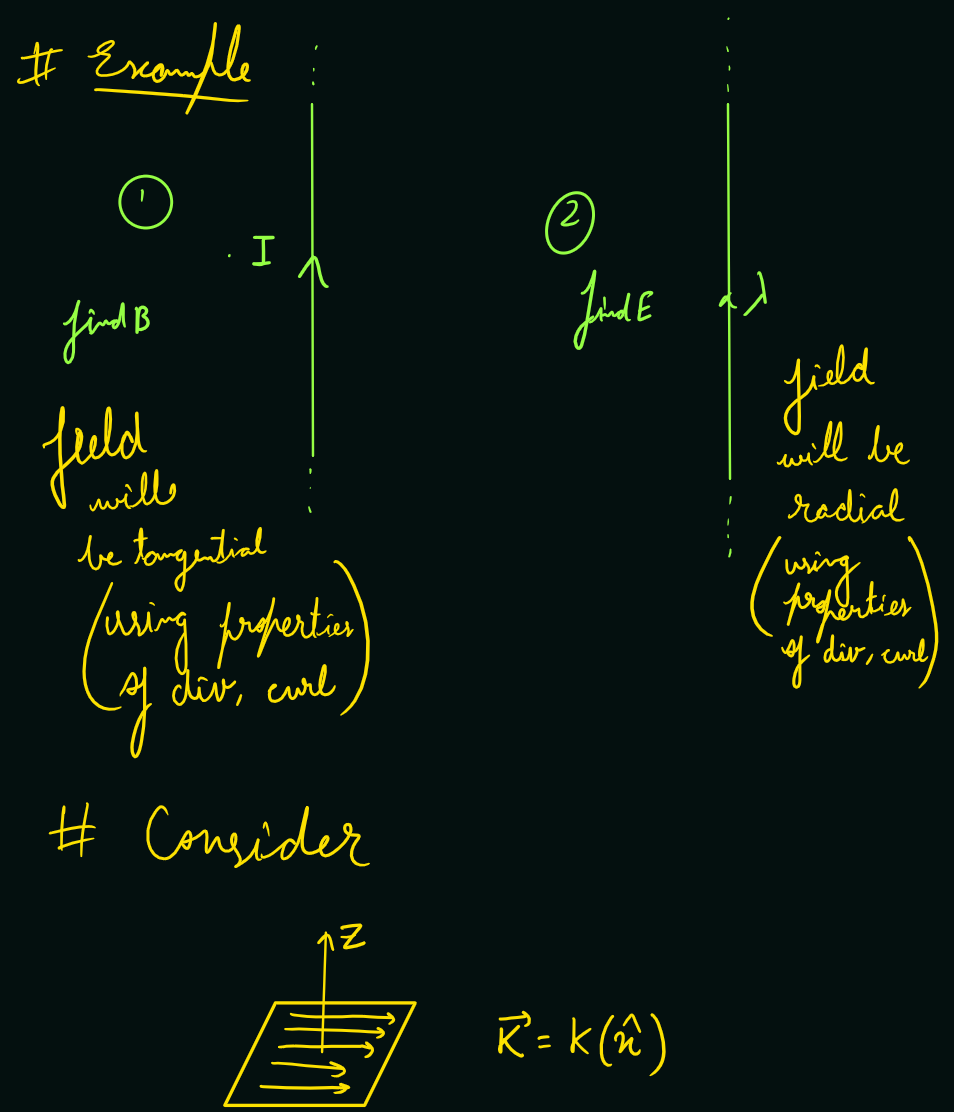 # Example
1
. I
find B
field
will
be tangential
(using properties
of div, curl)
2
find E
λ
field
will be
radial
(using
properties
of div, curl)
# Consider
Z
K⃗ = K(x̂)